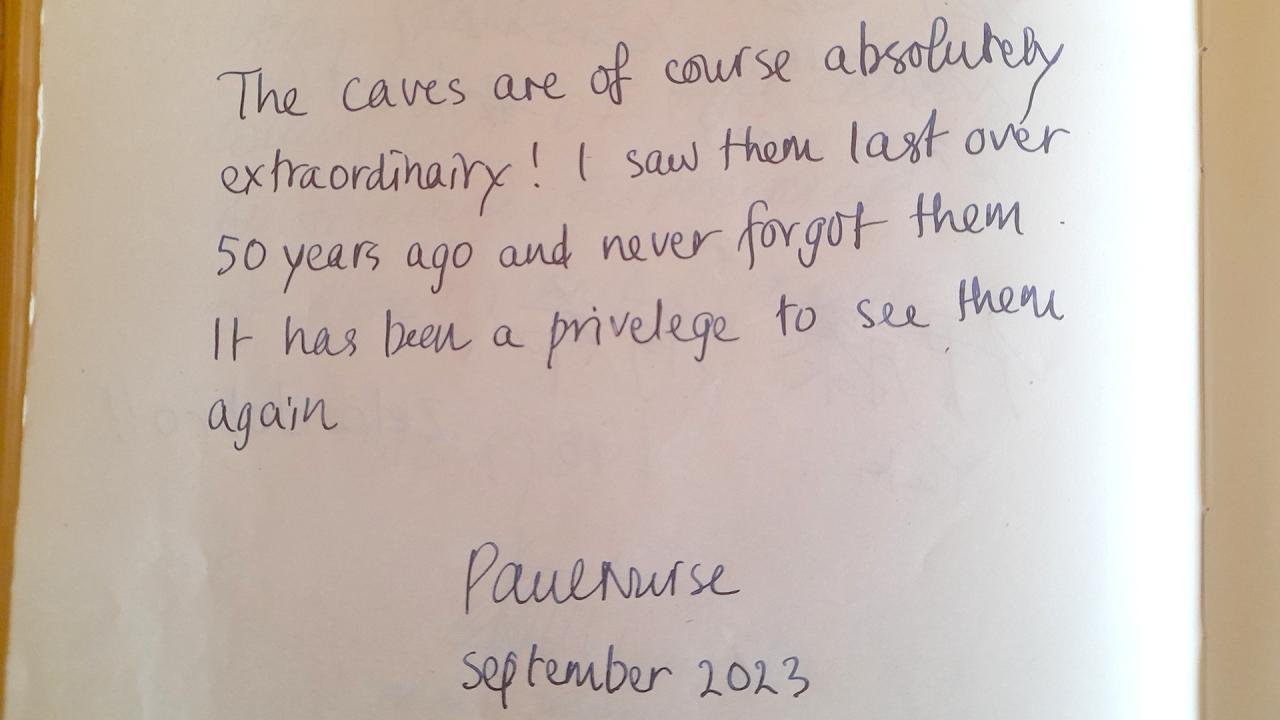 The caves are of course absolutely
extraordinairy! I saw them last over
50 years ago and never forgot them.
It has been a privelege to see them
again
Paul Nurse
September 2023